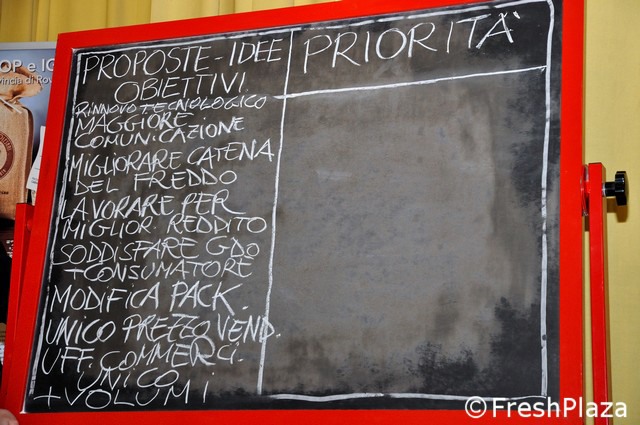 PROPOSTE-IDEE
OBIETTIVI
PRIORITÀ
RINNOVO TECNOLOGICO
MAGGIORE
COMUNICAZIONE
MIGLIORARE CATENA
DEL FREDDO
LAVORARE PER
MIGLIOR. REDDITO
SODDISFARE GDO
+CONSUMATORE
MODIFICA PACK.
UNICO PREZZO VEND.
UFF. COMMERCI.
UNICO
+VOLUMI
OP e IG
vincia di Ro
©FreshPlaza